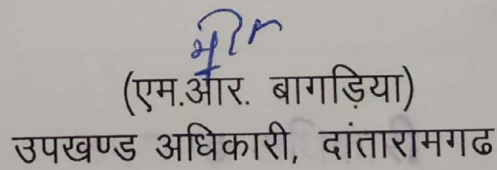 (एम.आर. बागड़िया)
उपखण्ड अधिकारी, दांतारामगढ